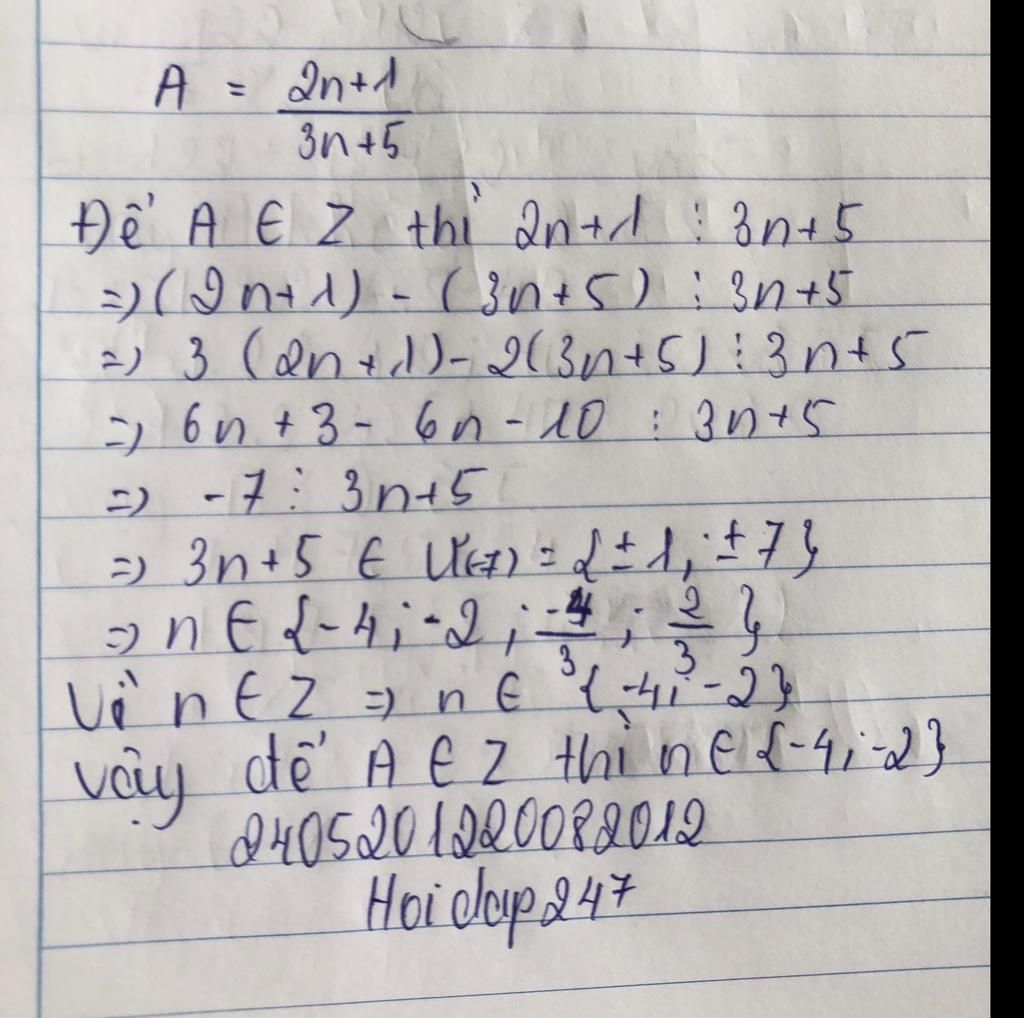 A = \frac{2n+1}{3n+5}
Để A ∈ Z thì 2n+1 ⋮ 3n+5
=> (2n+1) - (3n+5) ⋮ 3n+5
=> 3 (2n+1) - 2(3n+5) ⋮ 3n+5
=> 6n + 3 - 6n - 10 ⋮ 3n+5
=> -7 ⋮ 3n+5
=> 3n+5 ∈ Ư(-7) = {±1; ±7}
=> n ∈ {-4; -2; \frac{-4}{3}; \frac{2}{3}}
Vì n ∈ Z => n ∈ {-4; -2}
Vậy để A ∈ Z thì n ∈ {-4; -2}
2405201220082012
Hoidap247